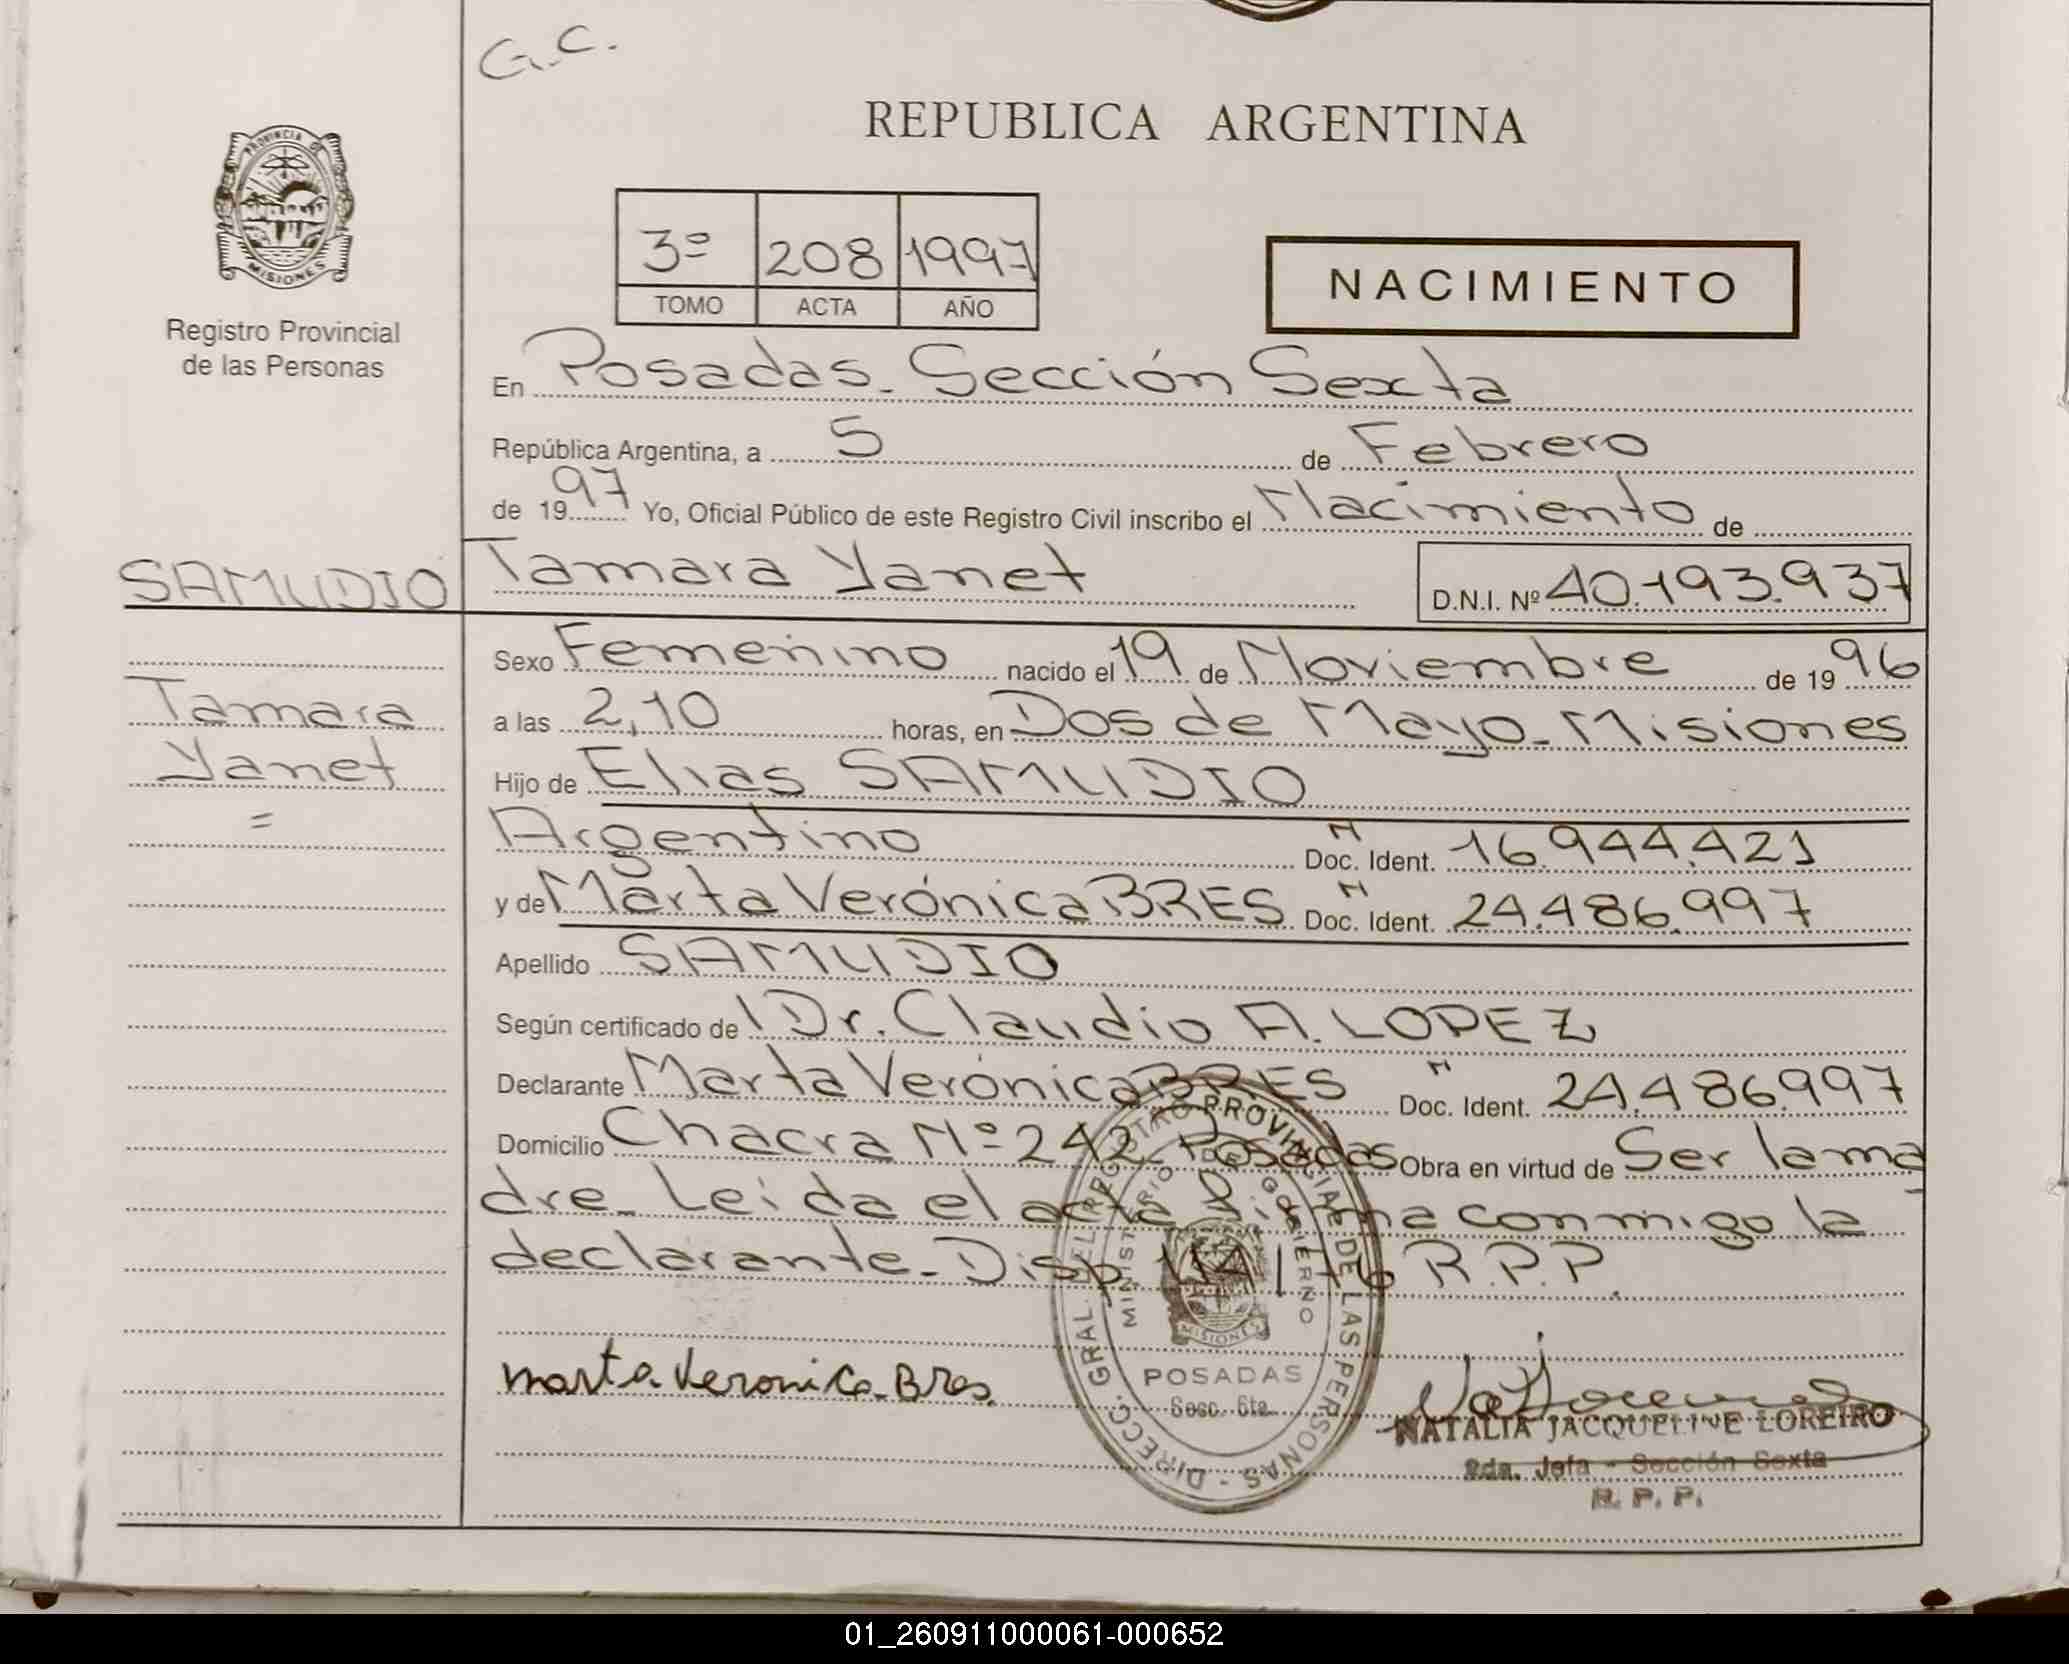 G.C.
PROVINCIA DE
MISIONES
Registro Provincial
de las Personas
REPUBLICA ARGENTINA
3º 208 1997
TOMO ACTA AÑO
NACIMIENTO
En Posadas - Sección Sexta
República Argentina, a 5 de Febrero
de 1997 Yo, Oficial Público de este Registro Civil inscribo el Nacimiento de
SAMUDIO Tamara Yanet D.N.I. Nº 40.193.937
Sexo Femenino nacido el 19 de Noviembre de 1996
Tamara a las 2,10 horas, en Dos de Mayo - Misiones
Yanet Hijo de Elias SAMUDIO
= Argentino Doc. Ident. M 16.944.421
y de Marta Verónica BRES Doc. Ident. M 24.486.997
Apellido SAMUDIO
Según certificado de Dr. Claudio A. LOPEZ
Declarante Marta Verónica BRES Doc. Ident. M 24.486.997
Domicilio Chacra Nº 242 Posadas Obra en virtud de Ser la ma
dre - Leida el acta firma conmigo la
declarante - Disp. 114/76 R.P.P.
DIRECC. GRAL. DEL REGISTRO PROVINCIAL DE LAS PERSONAS
MINISTERIO DE GOBIERNO
MISIONES
POSADAS
Secc. 6ta.
Marta Veronica Bres.
NATALIA JACQUELINE LOREIRO
2da. Jefa - Sección Sexta
R. P. P.
01_260911000061-000652